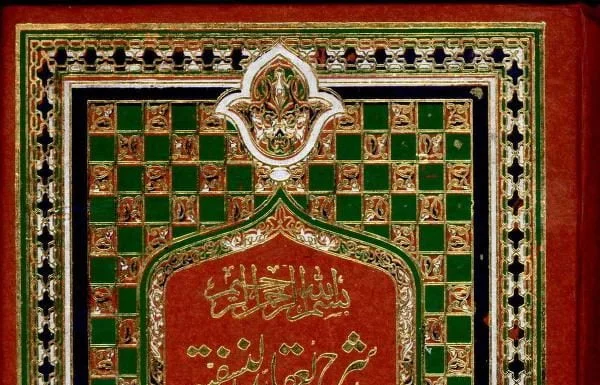 بسم الله الرحمن الرحيم
شرح العقائد النسفية